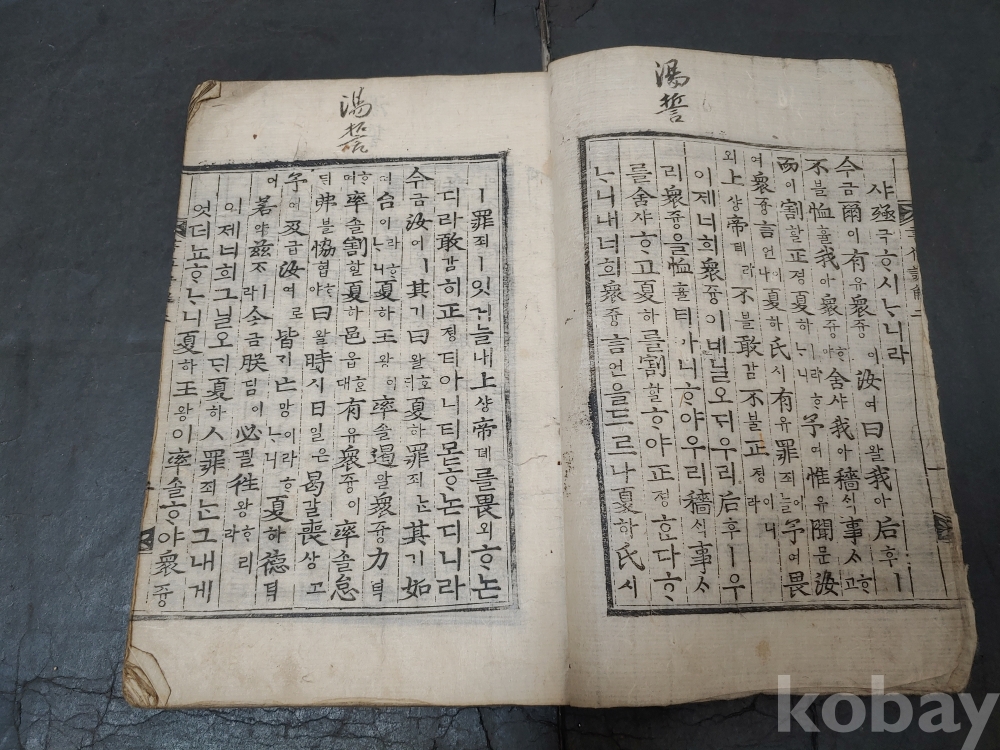 湯誓
샤殛극ᄒᆞ시ᄂᆞ니라
今금爾이有유衆즁이汝여曰왈我아后후ㅣ
不블恤휼我아衆즁ᄒᆞ야舍샤我아穡식事ᄉᆞᄒᆞ고
而이割할正졍夏하ㅣ라ᄒᆞᄂᆞ니予여惟유聞문汝
여衆즁言언이나夏하氏시有유罪죄늘이予여畏
외上샹帝뎨라不블敢감不블正졍이니라
이제너희衆즁이네닐오ᄃᆡ우리后후ㅣ우
리衆즁을恤휼티아니ᄒᆞ야우리穡식事ᄉᆞ
를舍샤ᄒᆞ고夏하를割할ᄒᆞ야正졍ᄒᆞᆫ다ᄒᆞ
ᄂᆞ니내너희衆즁言언을드르나夏하氏시
湯誓
ㅣ罪죄ㅣ잇거늘내上샹帝뎨를畏외ᄒᆞ논
디라敢감히正졍티아니티몯ᄒᆞ논디니라
今금汝여ㅣ其기曰왈호ᄃᆡ夏하罪죄ᄂᆞᆫ其기如
여台이라ᄒᆞᄂᆞ니夏하王왕이率솔遏알衆즁力력
ᄒᆞ며率솔割할夏하邑읍ᄒᆞᆫ대有유衆즁이率솔怠
ᄐᆡ弗블協협ᄒᆞ야曰왈時시日일은曷갈喪상고
予여及급汝여로皆ᄀᆡ亡망이라ᄒᆞᄂᆞ니夏하德덕
여若약玆ᄌᆞㅣ라今금朕딤이必필往왕호리라
이제너희그닐오ᄃᆡ夏하人罪죄ᄂᆞᆫ그내게
엇디뇨ᄒᆞᄂᆞ니夏하王왕이率솔ᄒᆞ야衆즁
kobay